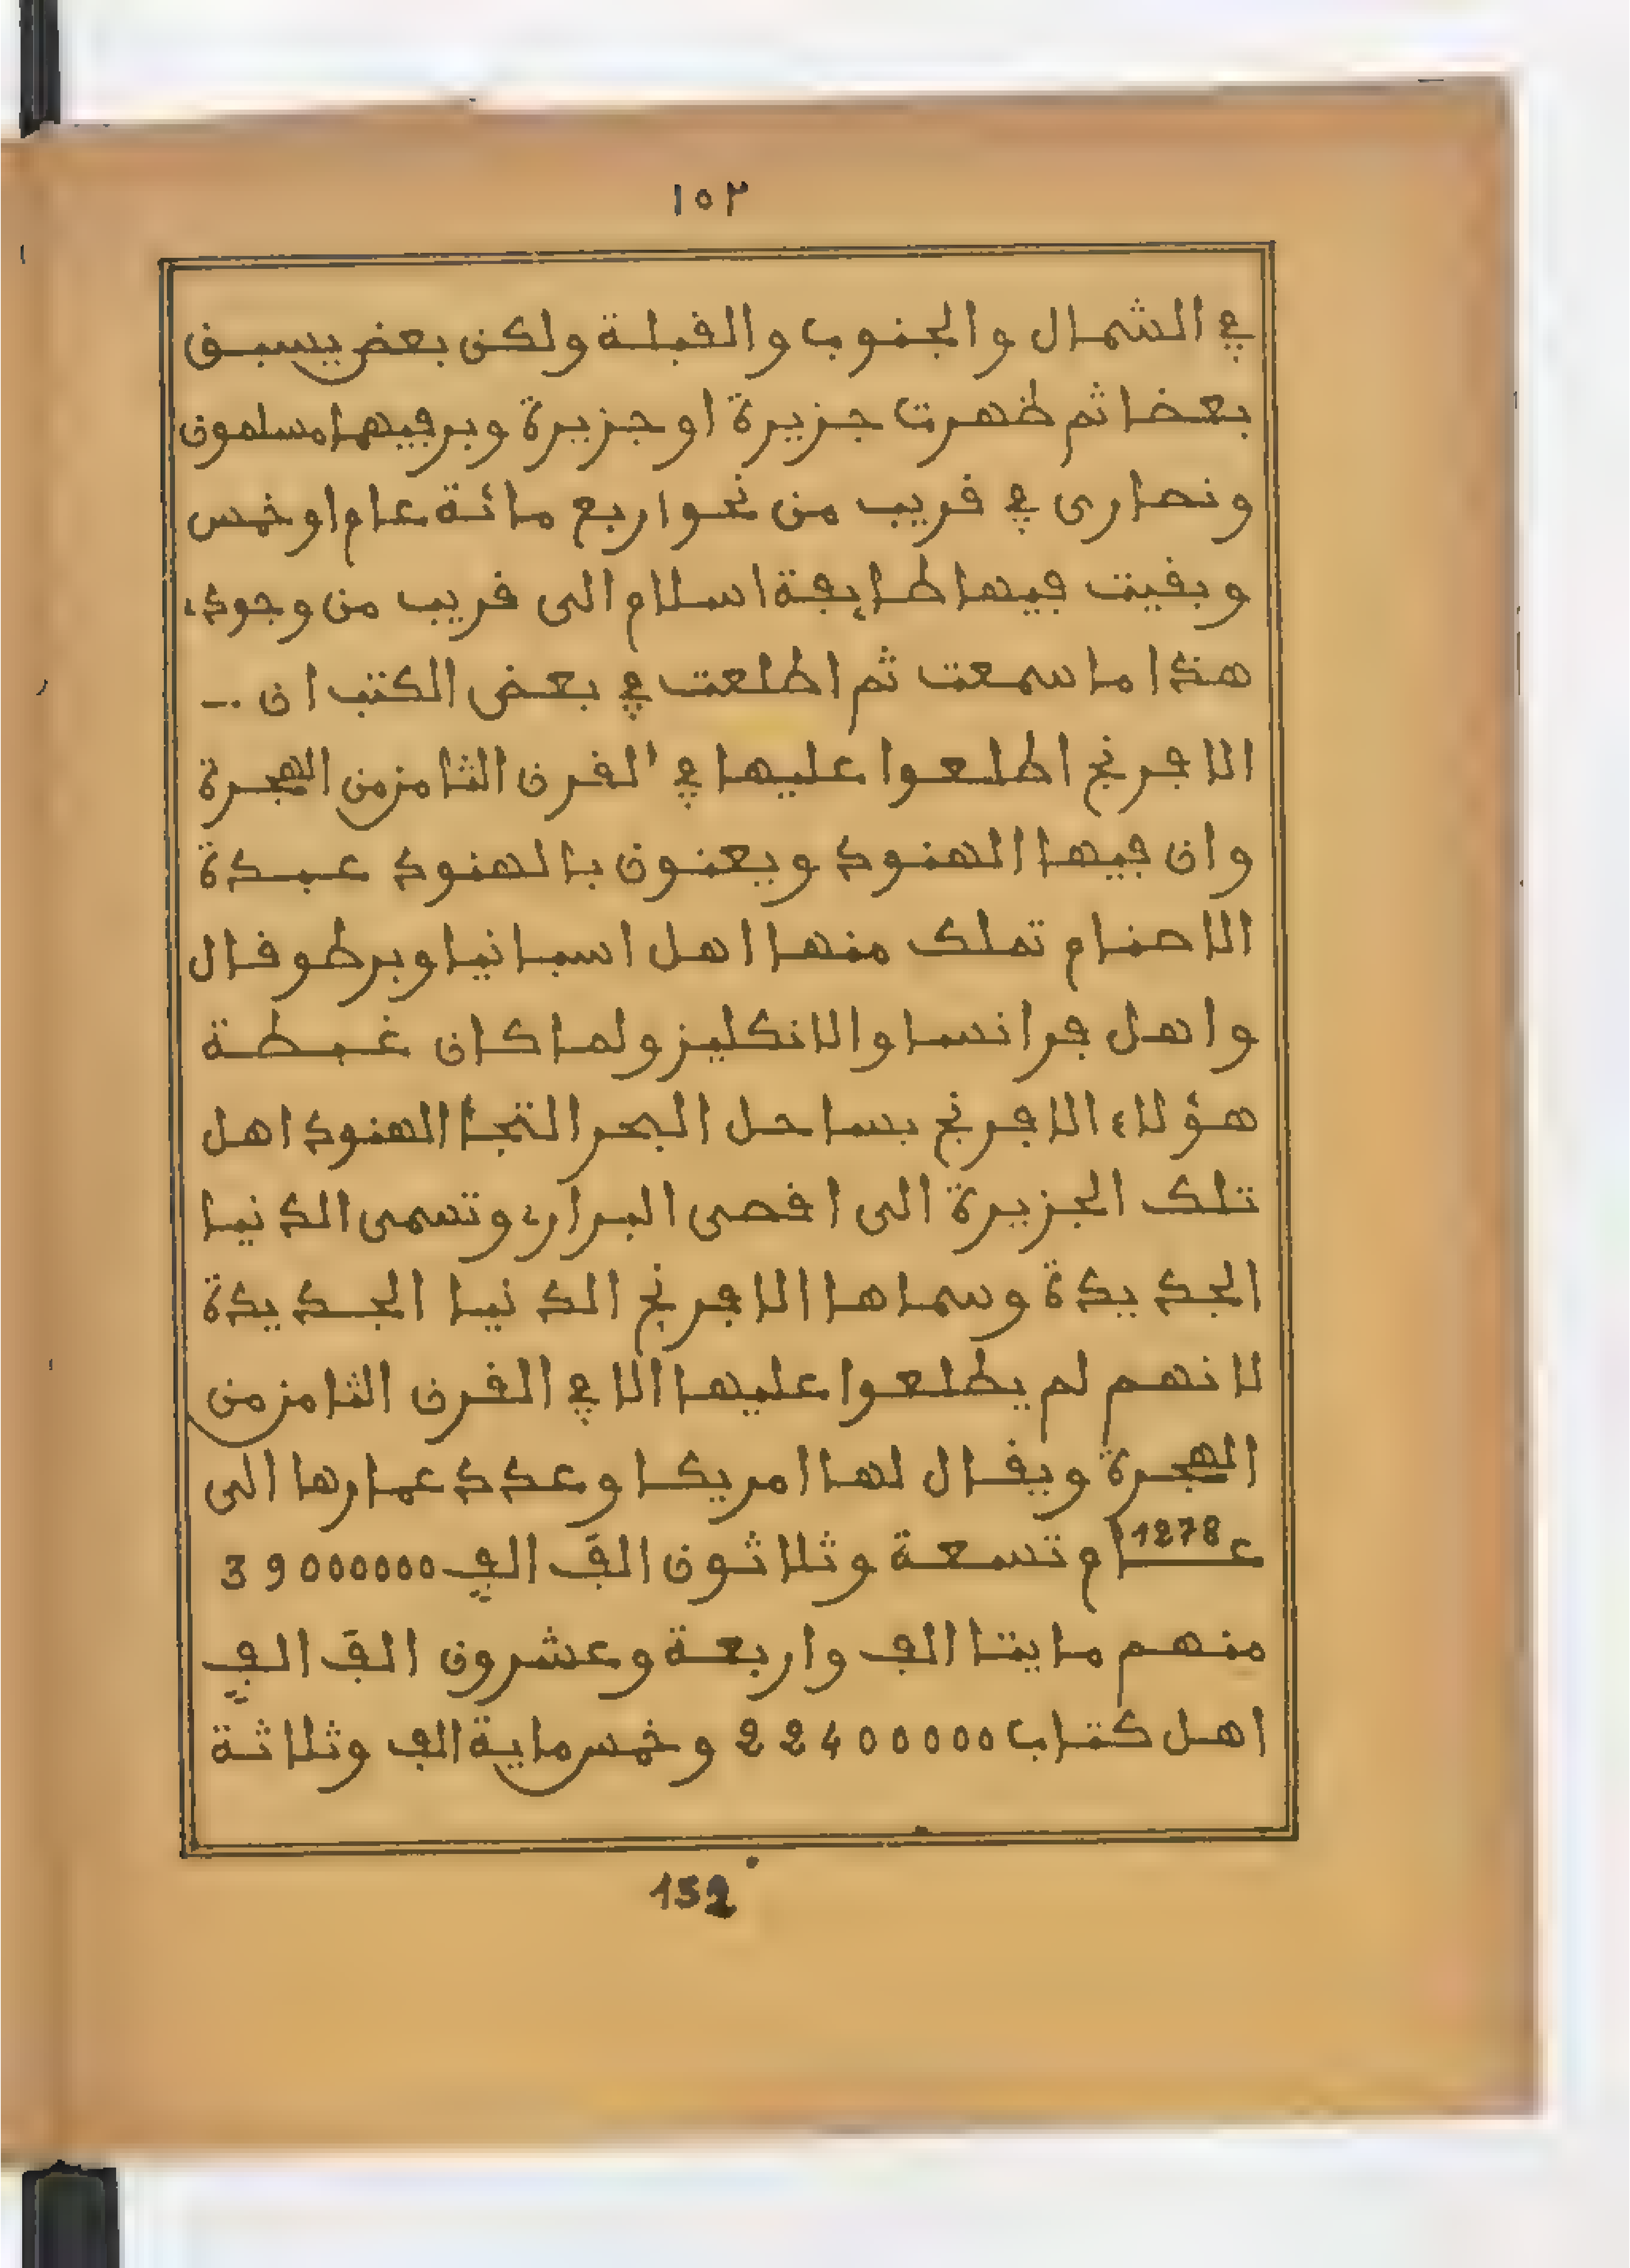 ١٥٢
في الشمال والجنوب والقبلة ولكن بعض يسبق
بعضا ثم ظهرت جزيرة او جزيرة وبر فيها مسلمون
ونصارى في قريب من نحو اربع مائة عام او خمس
وبقيت فيها طايفة اسلام الى قريب من وجوده
هذا ما سمعت ثم اطلعت في بعض الكتب ان ..
الافرنج اطلعوا عليها في القرن الثامن من الهجرة
وان فيها الهنود ويعنون بالهنود عبدة
الاصنام تملك منها اهل اسبانيا وبرطوقال
واهل فرانسا والانكليز ولما كان غبطة
هؤلاء الافرنج بساحل البحر التجا الهنود اهل
تلك الجزيرة الى اقصى البراري وتسمى الدنيا
الجديدة وسماها الافرنج الدنيا الجديدة
لانهم لم يطلعوا عليها الا في القرن الثامن من
الهجرة ويقال لها امريكا وعدد عمارها الى
عام 1278 تسعة وثلاثون الف الف 39000000
منهم مايتا الف واربعة وعشرون الف الف
اهل كتاب 22400000 وخمس ماية الف وثلاثة
152